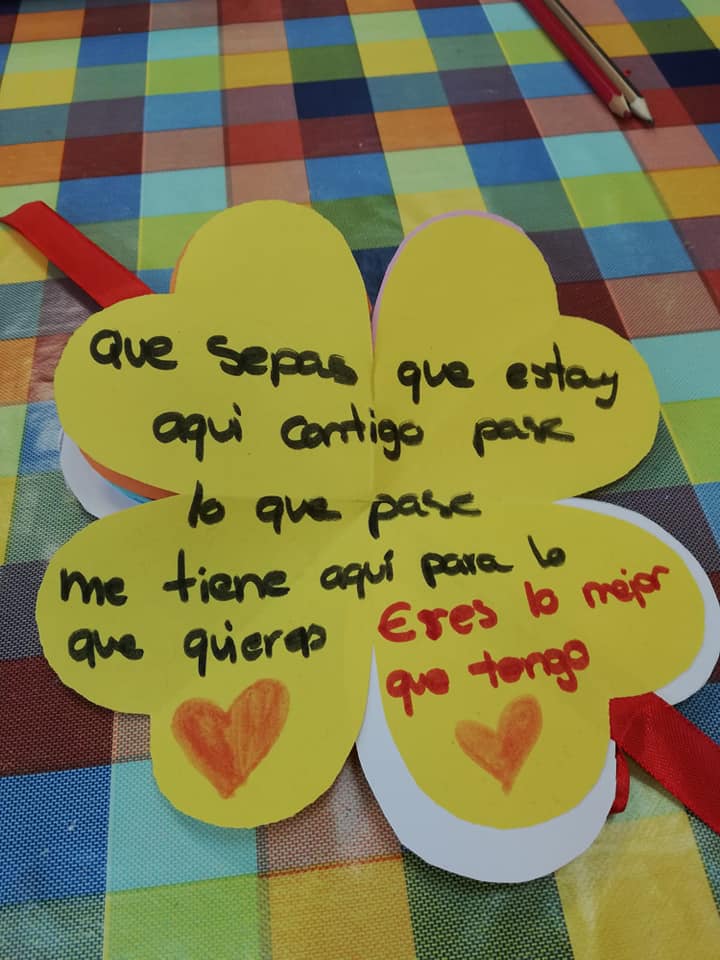 Que Sepas que estay
aqui contigo pase
lo que pase
me tiene aquí para lo
que quieras
Eres lo mejor
que tengo